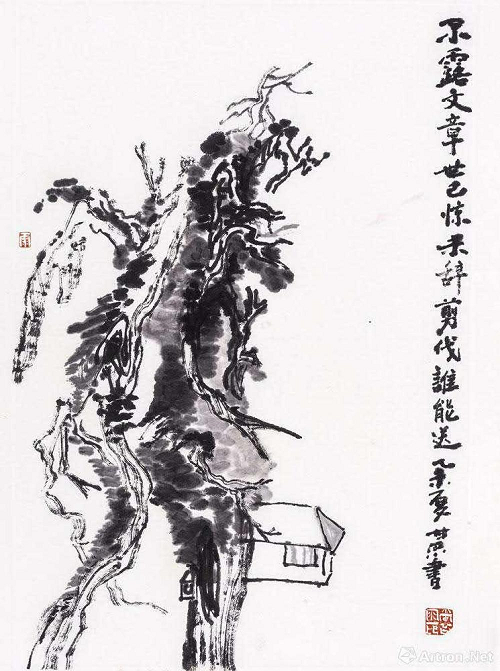 不露文章世已惊未辞剪伐誰能送乙未夏書
Artron.Net